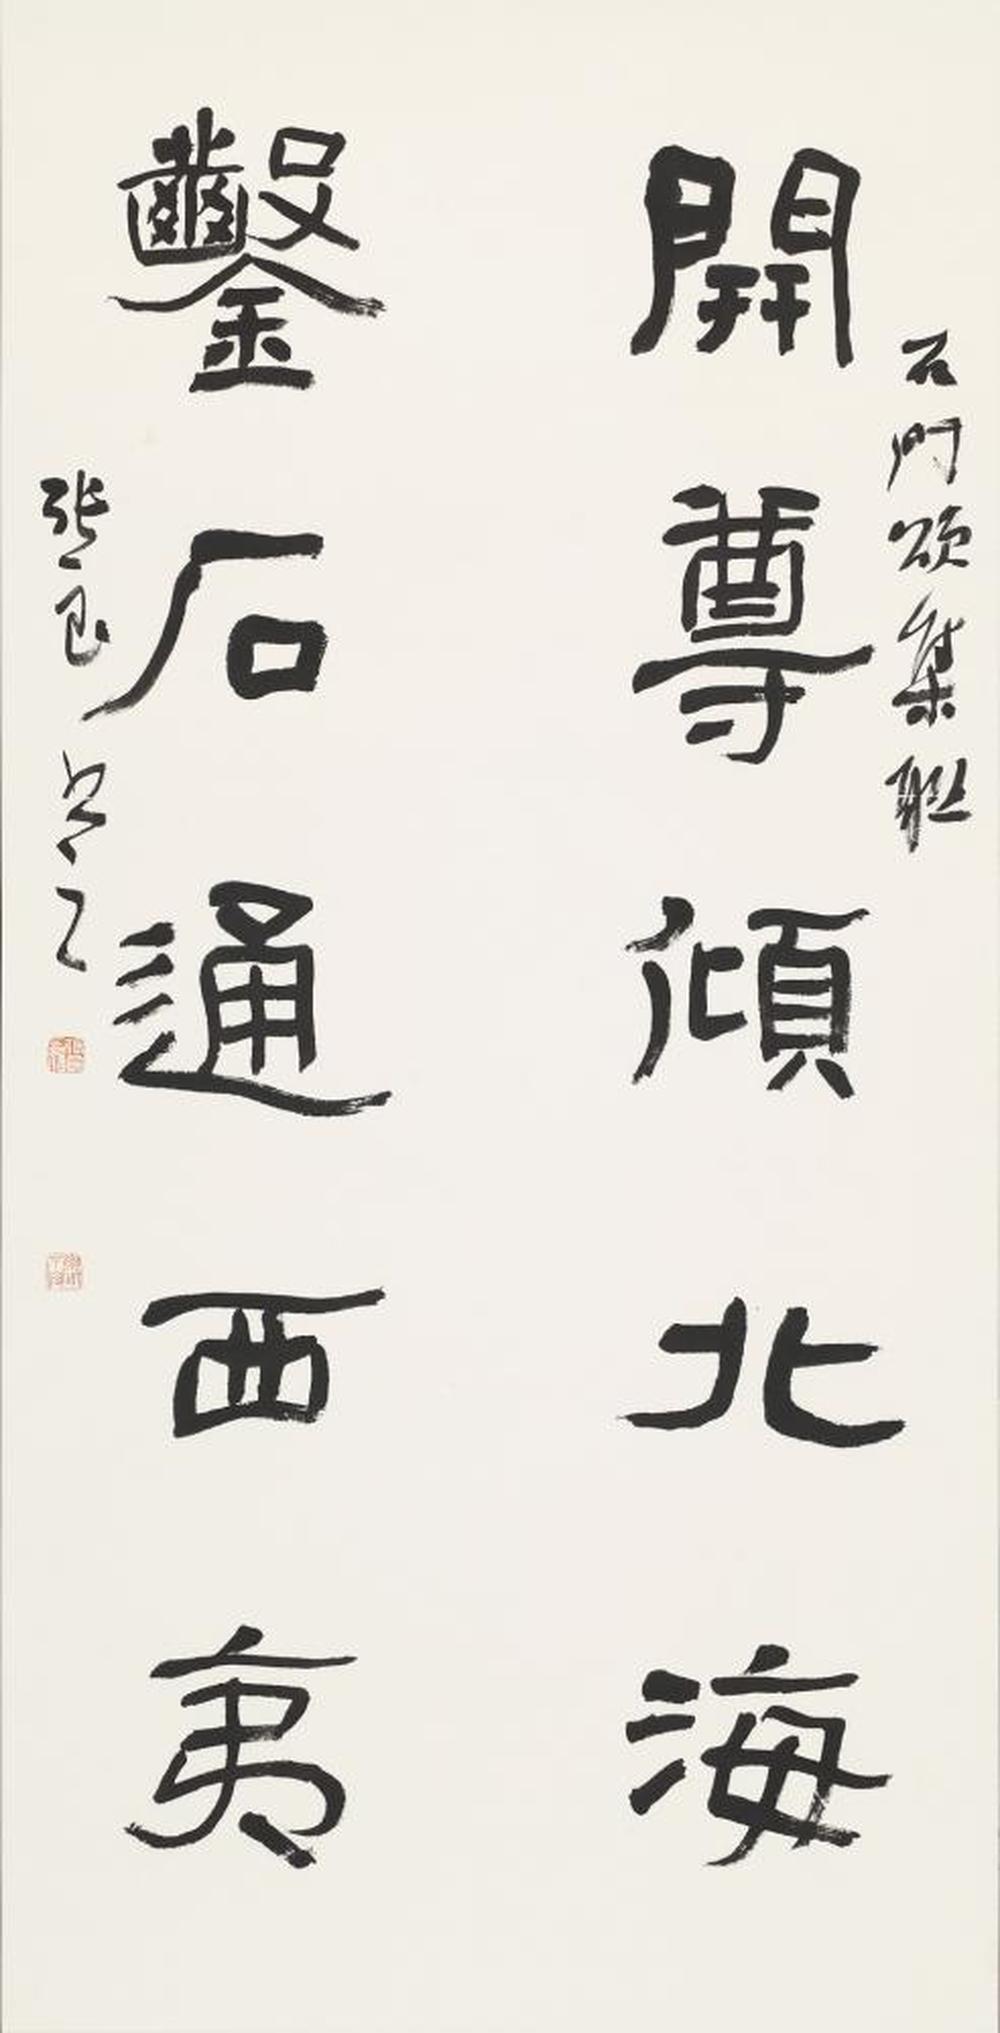 石門頌集聯
開尊傾北海
鑿石通西夷
張良書之